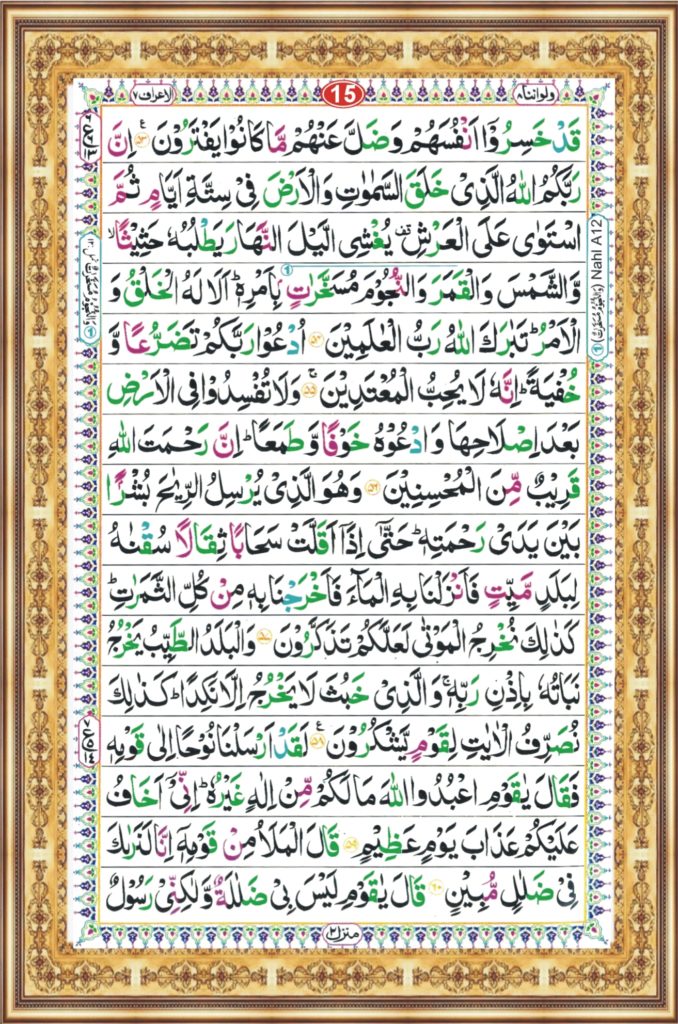 الاعراف ٧
15
ولواننا ٨
قَدْ خَسِرُوْۤا اَنْفُسَهُمْ وَضَلَّ عَنْهُمْ مَّا كَانُوْا يَفْتَرُوْنَ ۵۳ اِنَّ
رَبَّكُمُ اللّٰهُ الَّذِىْ خَلَقَ السَّمٰوٰتِ وَالْاَرْضَ فِىْ سِتَّةِ اَيَّامٍ ثُمَّ
اسْتَوٰى عَلَى الْعَرْشِ قف يُغْشِى الَّيْلَ النَّهَارَ يَطْلُبُهٗ حَثِيْثًا لا
وَّالشَّمْسَ وَالْقَمَرَ وَالنُّجُوْمَ مُسَخَّرٰتٍۭ بِاَمْرِهٖ ط اَلَا لَهُ الْخَلْقُ وَ
الْاَمْرُ ط تَبٰرَكَ اللّٰهُ رَبُّ الْعٰلَمِيْنَ ۵۴ اُدْعُوْا رَبَّكُمْ تَضَرُّعًا وَّ
خُفْيَةً ط اِنَّهٗ لَا يُحِبُّ الْمُعْتَدِيْنَ ۵۵ وَلَا تُفْسِدُوْا فِى الْاَرْضِ
بَعْدَ اِصْلَاحِهَا وَادْعُوْهُ خَوْفًا وَّطَمَعًا ط اِنَّ رَحْمَتَ اللّٰهِ
قَرِيْبٌ مِّنَ الْمُحْسِنِيْنَ ۵۶ وَهُوَ الَّذِىْ يُرْسِلُ الرِّيٰحَ بُشْرًۢا
بَيْنَ يَدَىْ رَحْمَتِهٖ ط حَتّٰۤى اِذَاۤ اَقَلَّتْ سَحَابًا ثِقَالًا سُقْنٰهُ
لِبَلَدٍ مَّيِّتٍ فَاَنْزَلْنَا بِهِ الْمَآءَ فَاَخْرَجْنَا بِهٖ مِنْ كُلِّ الثَّمَرٰتِ ط
كَذٰلِكَ نُخْرِجُ الْمَوْتٰى لَعَلَّكُمْ تَذَكَّرُوْنَ ۵۷ وَالْبَلَدُ الطَّيِّبُ يَخْرُجُ
نَبَاتُهٗ بِاِذْنِ رَبِّهٖ ج وَالَّذِىْ خَبُثَ لَا يَخْرُجُ اِلَّا نَكِدًا ط كَذٰلِكَ
نُصَرِّفُ الْاٰيٰتِ لِقَوْمٍ يَّشْكُرُوْنَ ۵۸ لَقَدْ اَرْسَلْنَا نُوْحًا اِلٰى قَوْمِهٖ
فَقَالَ يٰقَوْمِ اعْبُدُوا اللّٰهَ مَا لَكُمْ مِّنْ اِلٰهٍ غَيْرُهٗ ط اِنِّىْۤ اَخَافُ
عَلَيْكُمْ عَذَابَ يَوْمٍ عَظِيْمٍ ۵۹ قَالَ الْمَلَاُ مِنْ قَوْمِهٖۤ اِنَّا لَنَرٰىكَ
فِىْ ضَلٰلٍ مُّبِيْنٍ ۶۰ قَالَ يٰقَوْمِ لَيْسَ بِىْ ضَلٰلَةٌ وَّلٰكِنِّىْ رَسُوْلٌ
منزل ٢
① (وَالنُّجُوْمُ مُسَخَّرٰتٌ) Nahl A12